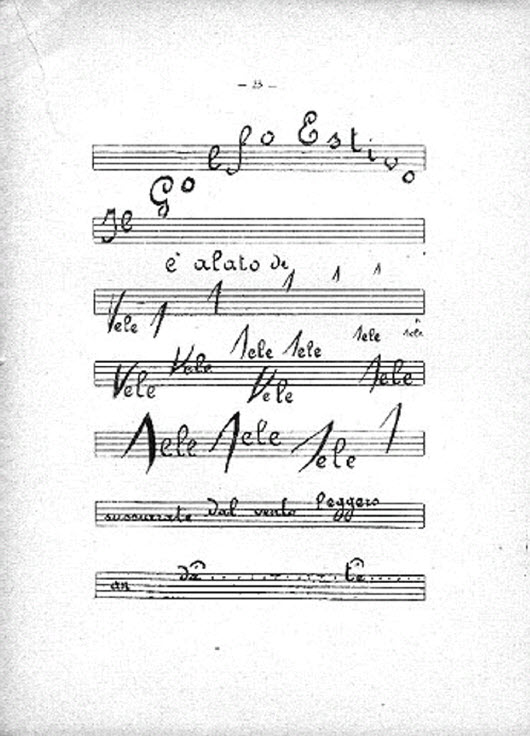 — 23 —
Il Golfo Estivo
è alato di
Vele 1 1 1 1 1
Vele Vele 1ele 1ele Vele 1ele 1ele 1ele
1ele 1ele 1ele 1
sussurrate dal vento leggero
an da ........ te ......